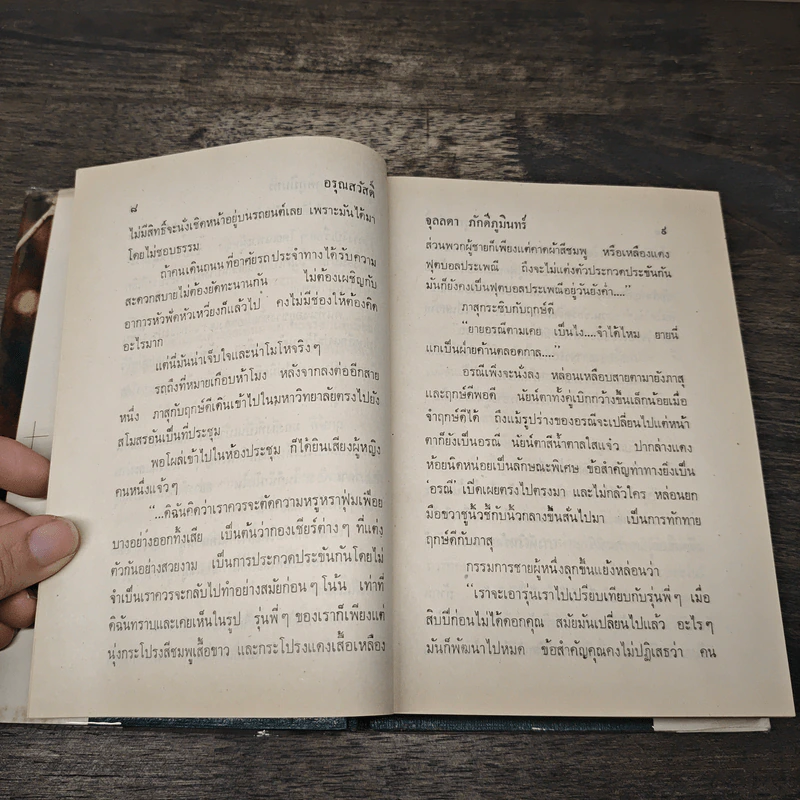 ๘
อรุณสวัสดิ์
ไม่มีสิทธิ์จะนั่งเชิดหน้าอยู่บนรถยนต์เลย เพราะมันได้มา
โดยไม่ชอบธรรม
ถ้าคนเดินถนน ที่อาศัยรถประจำทางได้รับความ
สะดวกสบายไม่ต้องยัดทะนานกัน ไม่ต้องเผชิญกับ
อาการหัวพัดหัวเหวี่ยงก็แล้วไป คงไม่มีช่องให้ต้องคิด
อะไรมาก
แต่นี่มันน่าเจ็บใจและน่าโมโหจริงๆ
รถถึงที่หมายเกือบห้าโมง หลังจากลงต่ออีกสาย
หนึ่ง ภาสุกับฤกษ์ดีเดินเข้าไปในมหาวิทยาลัยตรงไปยัง
สโมสรอันเป็นที่ประชุม
พอโผล่เข้าไปในห้องประชุม ก็ได้ยินเสียงผู้หญิง
คนหนึ่งแจ้วๆ
“...ดิฉันคิดว่าเราควรจะตัดความหรูหราฟุ่มเฟือย
บางอย่างออกทิ้งเสีย เป็นต้นว่ากองเชียร์ต่างๆ ที่แต่ง
ตัวกันอย่างสวยงาม เป็นการประกวดประขันกันโดยไม่
จำเป็นเราควรจะกลับไปทำอย่างสมัยก่อนๆ โน้น เท่าที่
ดิฉันทราบและเคยเห็นในรูป รุ่นพี่ๆ ของเราก็เพียงแต่
นุ่งกระโปรงสีชมพูเสื้อขาว และกระโปรงแดงเสื้อเหลือง
จุลลดา ภักดีภูมินทร์
๙
ส่วนพวกผู้ชายก็เพียงแต่คาดผ้าสีชมพู หรือเหลืองแดง
ฟุตบอลประเพณี ถึงจะไม่แต่งตัวประกวดประขันกัน
มันก็ยังคงเป็นฟุตบอลประเพณีอยู่วันยังค่ำ....”
ภาสุกระซิบกับฤกษ์ดี
“ยายอรณีตามเคย เป็นไง....จำได้ไหม ยายนี่
แกเป็นฝ่ายค้านตลอดกาล....”
อรณีเพิ่งจะนั่งลง หล่อนเหลือบสายตามายังภาสุ
และฤกษ์ดีพอดี นัยน์ตาทั้งคู่เบิกกว้างขึ้นเล็กน้อยเมื่อ
จำฤกษ์ดีได้ ถึงแม้รูปร่างของอรณีจะเปลี่ยนไปแต่หน้า
ตาก็ยังเป็นอรณี นัยน์ตาสีน้ำตาลใสแจ๋ว ปากล่างแดง
ห้อยนิดหน่อยเป็นลักษณะพิเศษ ข้อสำคัญท่าทางยังเป็น
‘อรณี’ เปิดเผยตรงไปตรงมา และไม่กลัวใคร หล่อนยก
มือขวาชูนิ้วชี้กับนิ้วกลางขึ้นสั่นไปมา เป็นการทักทาย
ฤกษ์ดีกับภาสุ
กรรมการชายผู้หนึ่งลุกขึ้นแย้งหล่อนว่า
“เราจะเอารุ่นเราไปเปรียบเทียบกับรุ่นพี่ๆ เมื่อ
สิบปีก่อนไม่ได้ดอกคุณ สมัยมันเปลี่ยนไปแล้ว อะไรๆ
มันก็พัฒนาไปหมด ข้อสำคัญคุณคงไม่ปฏิเสธว่า คน